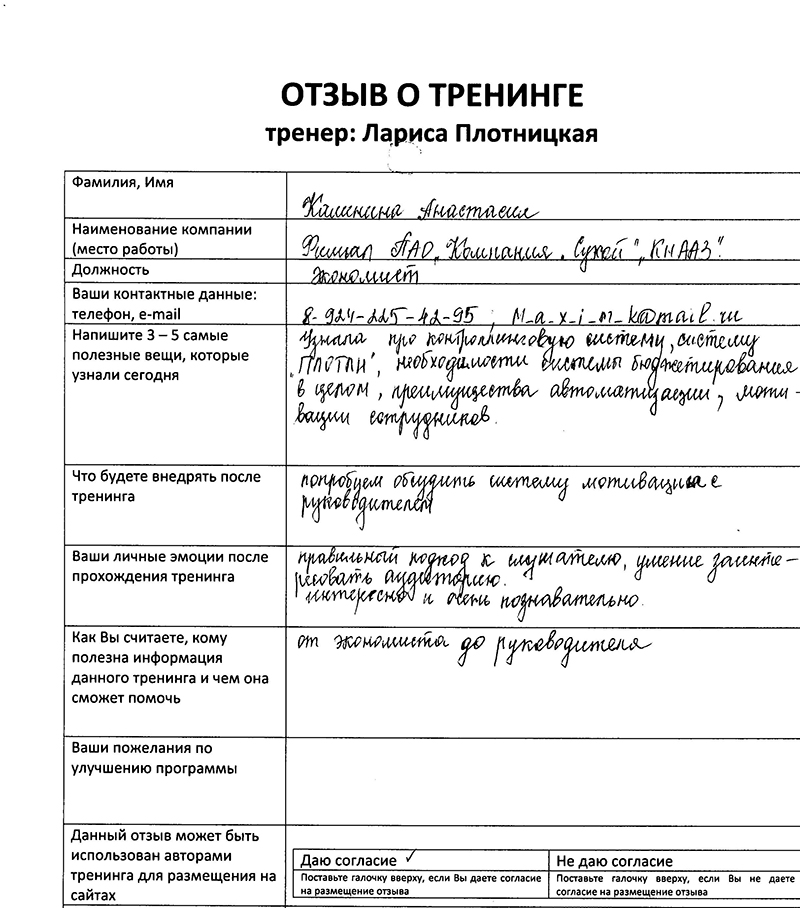 ОТЗЫВ О ТРЕНИНГЕ
тренер: Лариса Плотницкая
Фамилия, Имя
Калинина Анастасия
Наименование компании
(место работы)
Филиал ПАО „Компания „Сухой" „КНААЗ".
Должность
экономист
Ваши контактные данные:
телефон, e-mail
8-924-225-42-95 ; M_a_x_i_m_k@mail.ru
Напишите 3 – 5 самые
полезные вещи, которые
узнали сегодня
Узнала про контроллинговую систему, систему
„ПЛОТЛИ", необходимости системы бюджетирования
в целом, преимущества автоматизации, моти-
вации сотрудников.
Что будете внедрять после
тренинга
попробуем обсудить систему мотивации с
руководителем
Ваши личные эмоции после
прохождения тренинга
правильный подход к слушателю, умение заинте-
ресовать аудиторию.
интересно и очень познавательно.
Как Вы считаете, кому
полезна информация
данного тренинга и чем она
сможет помочь
от экономиста до руководителя
Ваши пожелания по
улучшению программы
Данный отзыв может быть
использован авторами
тренинга для размещения на
сайтах
Даю согласие ✓
Не даю согласие
Поставьте галочку вверху, если Вы даете согласие
на размещение отзыва
Поставьте галочку вверху, если Вы не даете
согласие на размещение отзыва